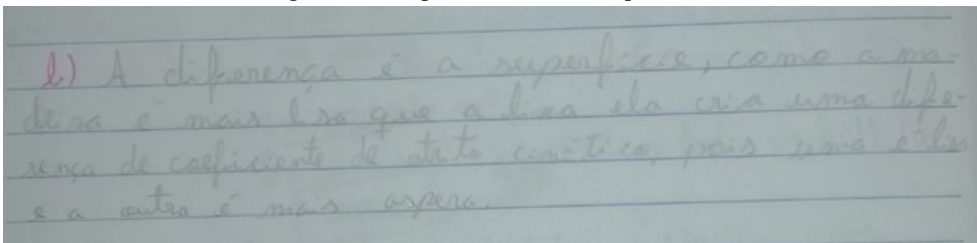 b) A diferença é a superfície, como a ma-
deira é mais lisa que a lixa ela cria uma dife-
rença de coeficiente de atrito cinético, pois uma é lisa
e a outra é mais aspera.